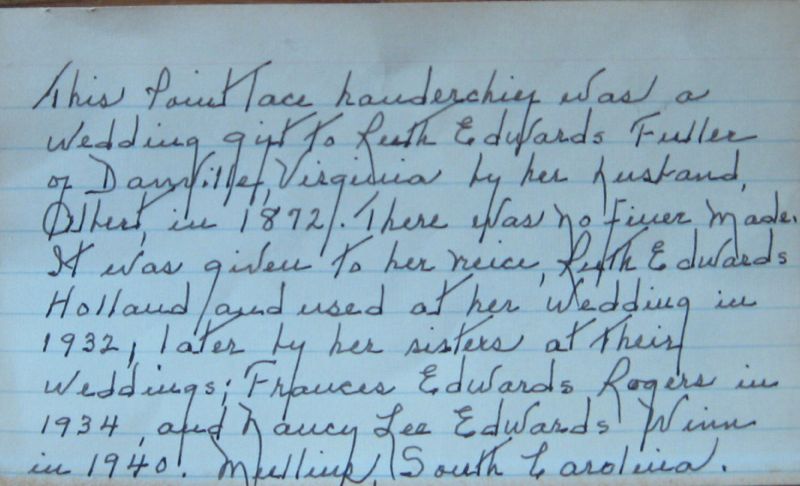 This Point lace handerchief was a
wedding gift to Ruth Edwards Fuller
of Danville, Virginia by her husband,
Albert, in 1872. There was no finer made.
It was given to her neice, Ruth Edwards
Holland and used at her wedding in
1932, later by her sisters at their
weddings; Frances Edwards Rogers in
1934, and Nancy Lee Edwards Winn
in 1940. Mullins, South Carolina.